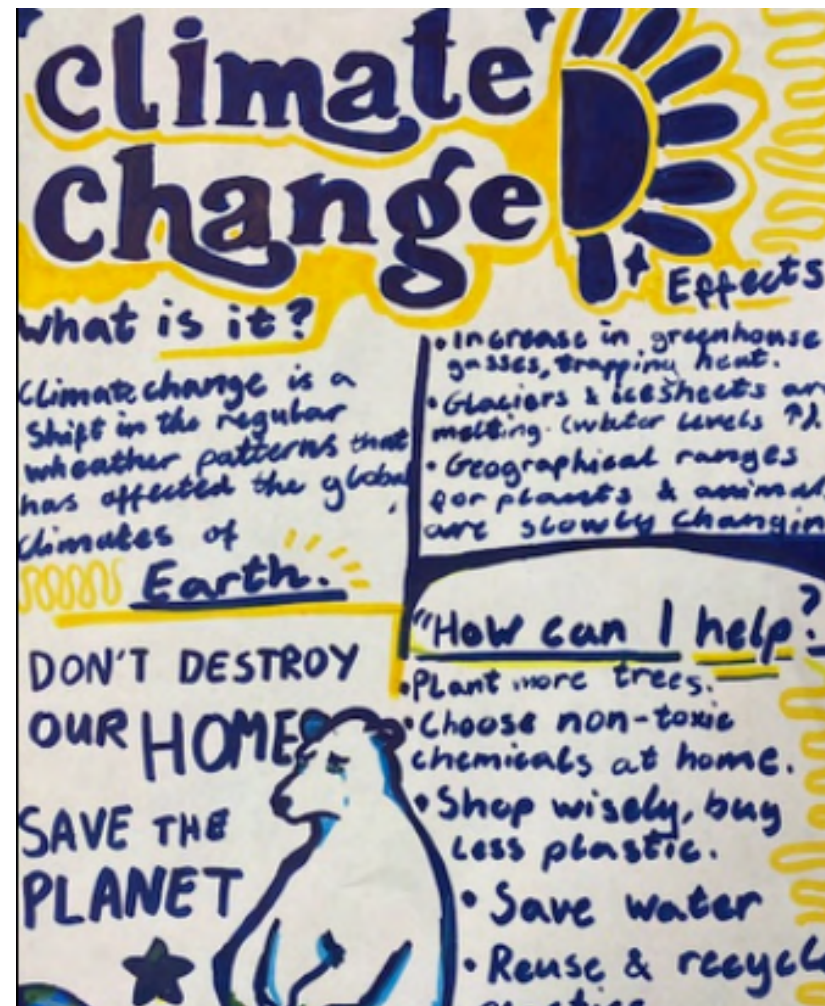 climate
change
what is it?
climate change is a
shift in the regular
wheather patterns that
has affected the global
climates of
Earth.
DON'T DESTROY
OUR HOME
SAVE THE
PLANET
Effects
• Increase in greenhouse
gasses, trapping heat.
• Glaciers & icesheets ar
melting. (water levels ↑).
• Geographical ranges
for plants & animal
are slowly changin
"How can I help?
• Plant more trees.
• Choose non-toxic
chemicals at home.
• Shop wisely, buy
less plastic.
• Save water
• Reuse & recycl